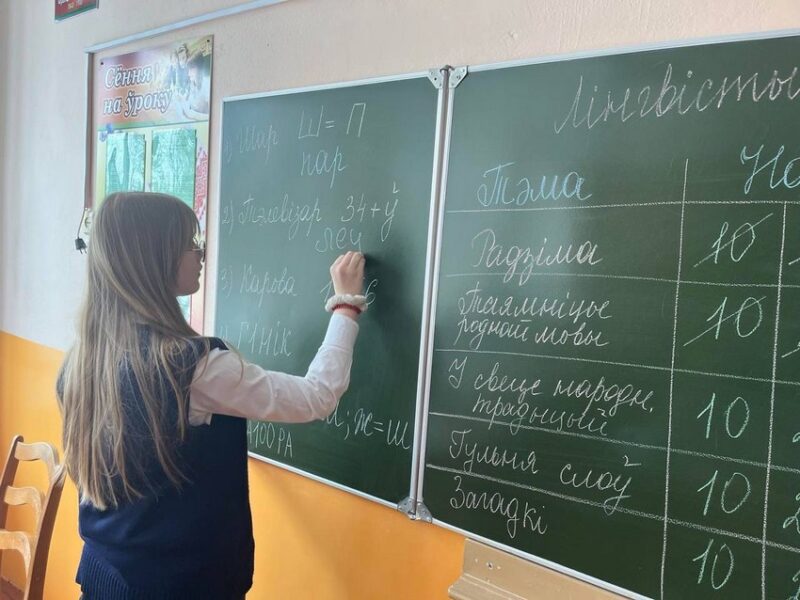 Сёння
на ўроку
1) Шар Ш = П
пар
2) Тэлевізар 34+ў
леў
3) Карова
ГІНІК
; ж=ш
А100РА
Лінгвісты
Тэма
Радзіма 10
Таямніцы 10
роднай мовы
У свеце народн. 10
традыцый
Гульня слоў 10
Загадкі 10